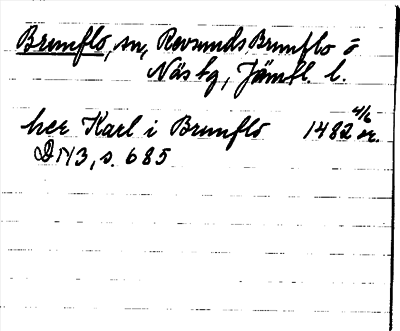 Brunflo, sn, Revsunds, Brunflo o
Näs tg, Jämtl. l.
her Karl i Brunflo 1482 4/6 or.
DN3, s. 685